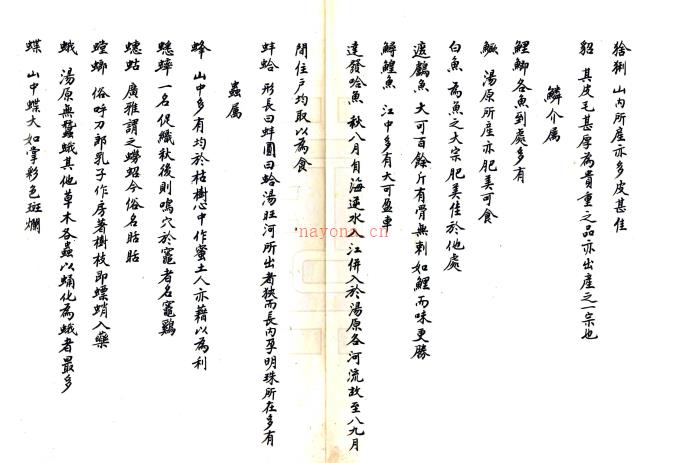 猞猁 山内所產亦多皮甚佳
貂 其皮毛甚厚為貴重之品亦出產之一宗也
鱗介屬
鯉鯽各魚到處多有
鱖 湯原所產亦肥美可食
白魚 為魚之大宗肥美佳於他處
遮鱺魚 大可百餘斤有骨無刺如鯉而味更勝
鱘鰉魚 江中多有大可盈車
達發哈魚 秋八月自海逆水入江併入於湯原各河流故至八九月
間住戶均取以為食
蚌蛤 形長曰蚌圓曰蛤湯旺河所出者狹而長内孕明珠所在多有
蟲屬
蜂 山中多有均於枯樹心中作蜜土人亦藉以為利
蟋蟀 一名促織秋後則鳴穴於竈者名竈鷄
蟪蛄 廣雅謂之蟧蛁今俗名蛄蛄
螳螂 俗呼刀郎乳子作房著樹枝即螵蛸入藥
蛾 湯原無蠶蛾其他草木各蟲以蛹化為蛾者最多
蝶 山中蝶大如掌彩色斑斕
nayona.cn